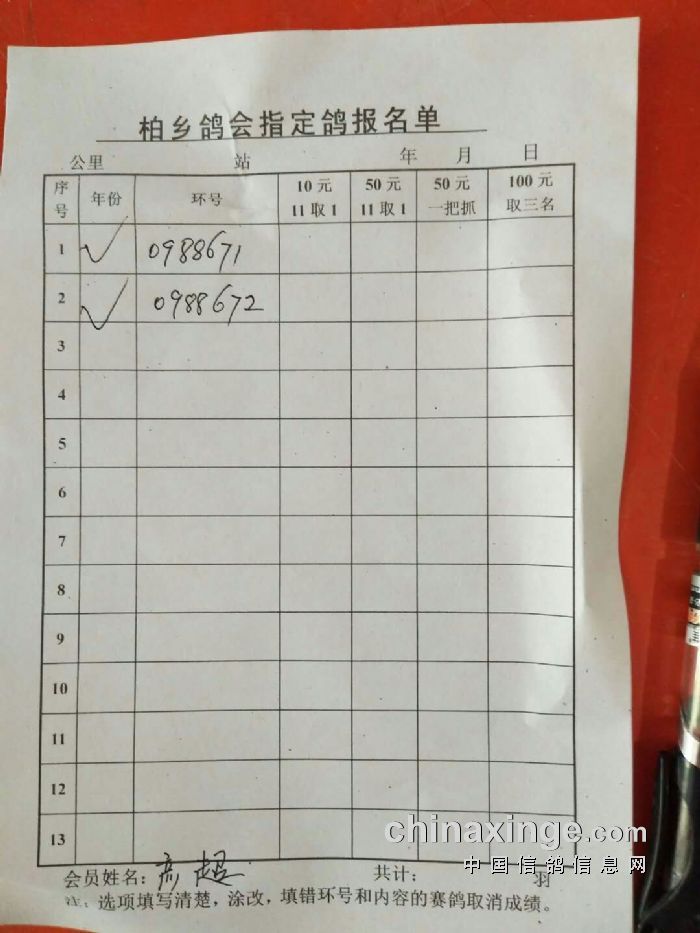 柏乡鸽会指定鸽报名单
公里 站 年 月 日
序号 年份 环号 10元 11取1 50元 11取1 50元 一把抓 100元 取三名
1 ✓ 0988671
2 ✓ 0988672
3
4
5
6
7
8
9
10
11
12
13
chinaxinge.com
中国信鸽信息网
会员姓名：高超 共计： 羽
注：选项填写清楚，涂改，填错环号和内容的赛鸽取消成绩。